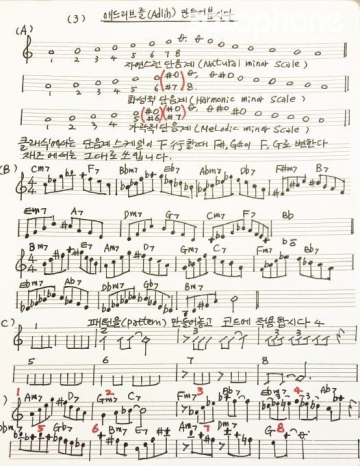 (3) 애드리브를(Adlib) 만들어봅시다
(A)
1 2 3 4 5 6 7 8
자연스런 단음계 (Natural minor scale)
1 2 3 4 5 6 (#7) 8
화성적 단음계 (Harmonic minor scale)
1 2 3 4 5 (#6) (#7)
가락적 단음계 (Melodic minor scale)
클래식에서는 단음계 스케일이 下行할때 F#, G#이 F, G로 변한다
재즈에서는 그대로 쓰입니다.
(B) Cm7 F7 Bbm7 Eb7 Abm7 Db7 F#m7 B7
Em7 A7 Dm7 G7 Cm7 F7 Bb
Bm7 E7 Am7 D7 Gm7 C7 Fm7 Bb7
Ebm7 Ab7 Dbm7 Gb7 Bm7
C) 패턴을(pattern) 만들어놓고 코드에 적용합시다
1 2 3 4
5 6 7 8
1 2 3 4
Am7 D7 Gm7 C7 Fm7 Bb7 Ebm7 Ab7
5 6 7 8
Dbm7 Gb7 Bm7 E7 Am7 D7 G